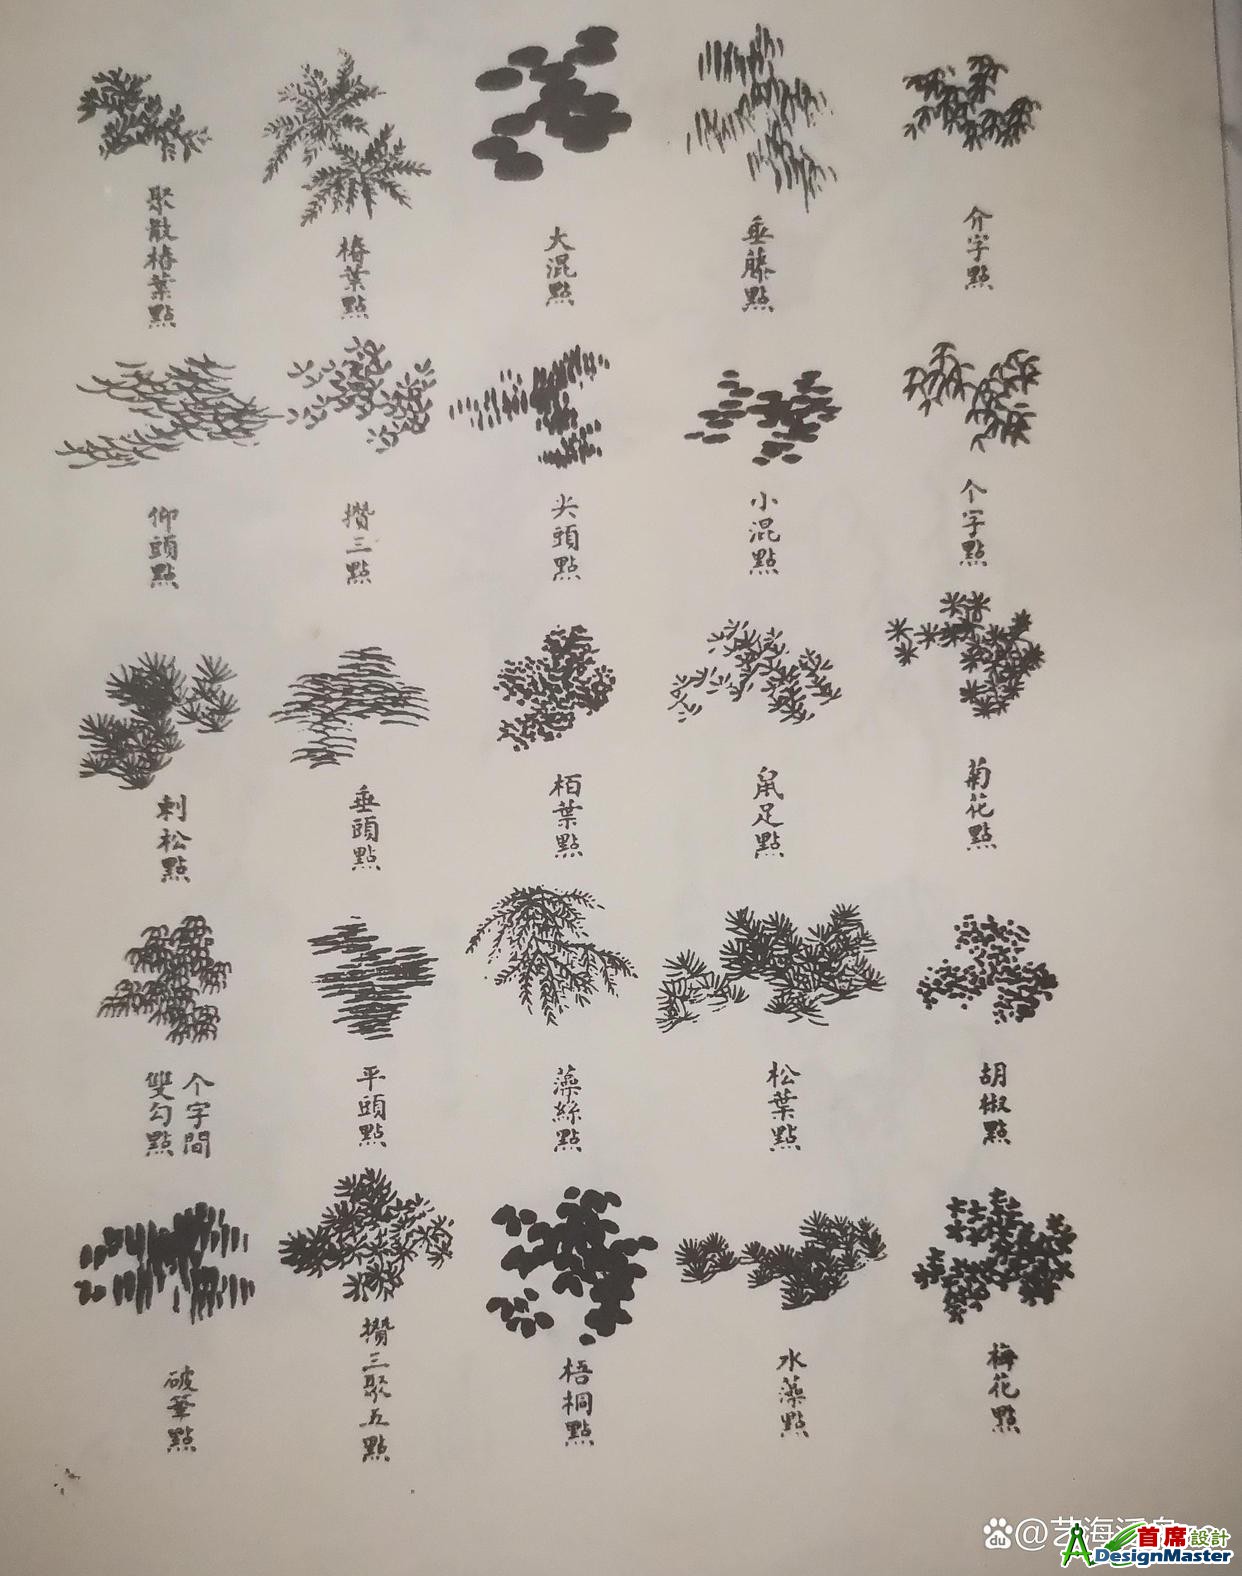 介字點
个字點
菊花點
胡椒點
梅花點
垂藤點
小混點
鼠足點
松葉點
水藻點
大混點
尖頭點
栢葉點
藻絲點
梧桐點
椿葉點
攢三點
垂頭點
平頭點
攢三聚五點
聚散椿葉點
仰頭點
刺松點
个字間
雙勾點
破筆點
du@艺海
首席設計
DesignMaster